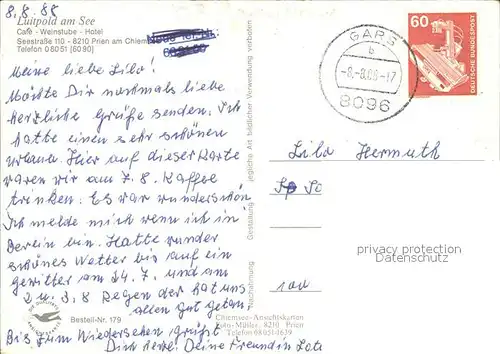 8.8.88
Luitpold am See
Café - Weinstube - Hotel
Seestraße 110 - 8210 Prien am Chiemsee
Telefon 08051 (6090)
Meine liebe Lilo!
Möchte Dir nochmals liebe
herzliche Grüße senden. Ich
hatte einen sehr schönen
Urlaub. Hier auf dieser Karte
waren wir am 7.8. Kaffee
trinken. Es war wunderschön
Ich melde mich wenn ich in
Berlin bin. Hatte wunder
schönes Wetter bis auf ein
Gewitter am 24.7. und am
2 u. 3.8 Regen der hat uns
allen gut getan.
Bestell-Nr. 179
Bis zum Wiedersehen grüßt
Dich herzl. Deine Freundin Lot
Gestaltung
jegliche Art bildlicher Verwendung verboten
Chiemsee-Ansichtskarten
Foto-Müller, 8210 Prien
Telefon 08051-1639
GARS
b
8096
60
DEUTSCHE BUNDESPOST
Lilo Hermuth
privacy protection
Datenschutz